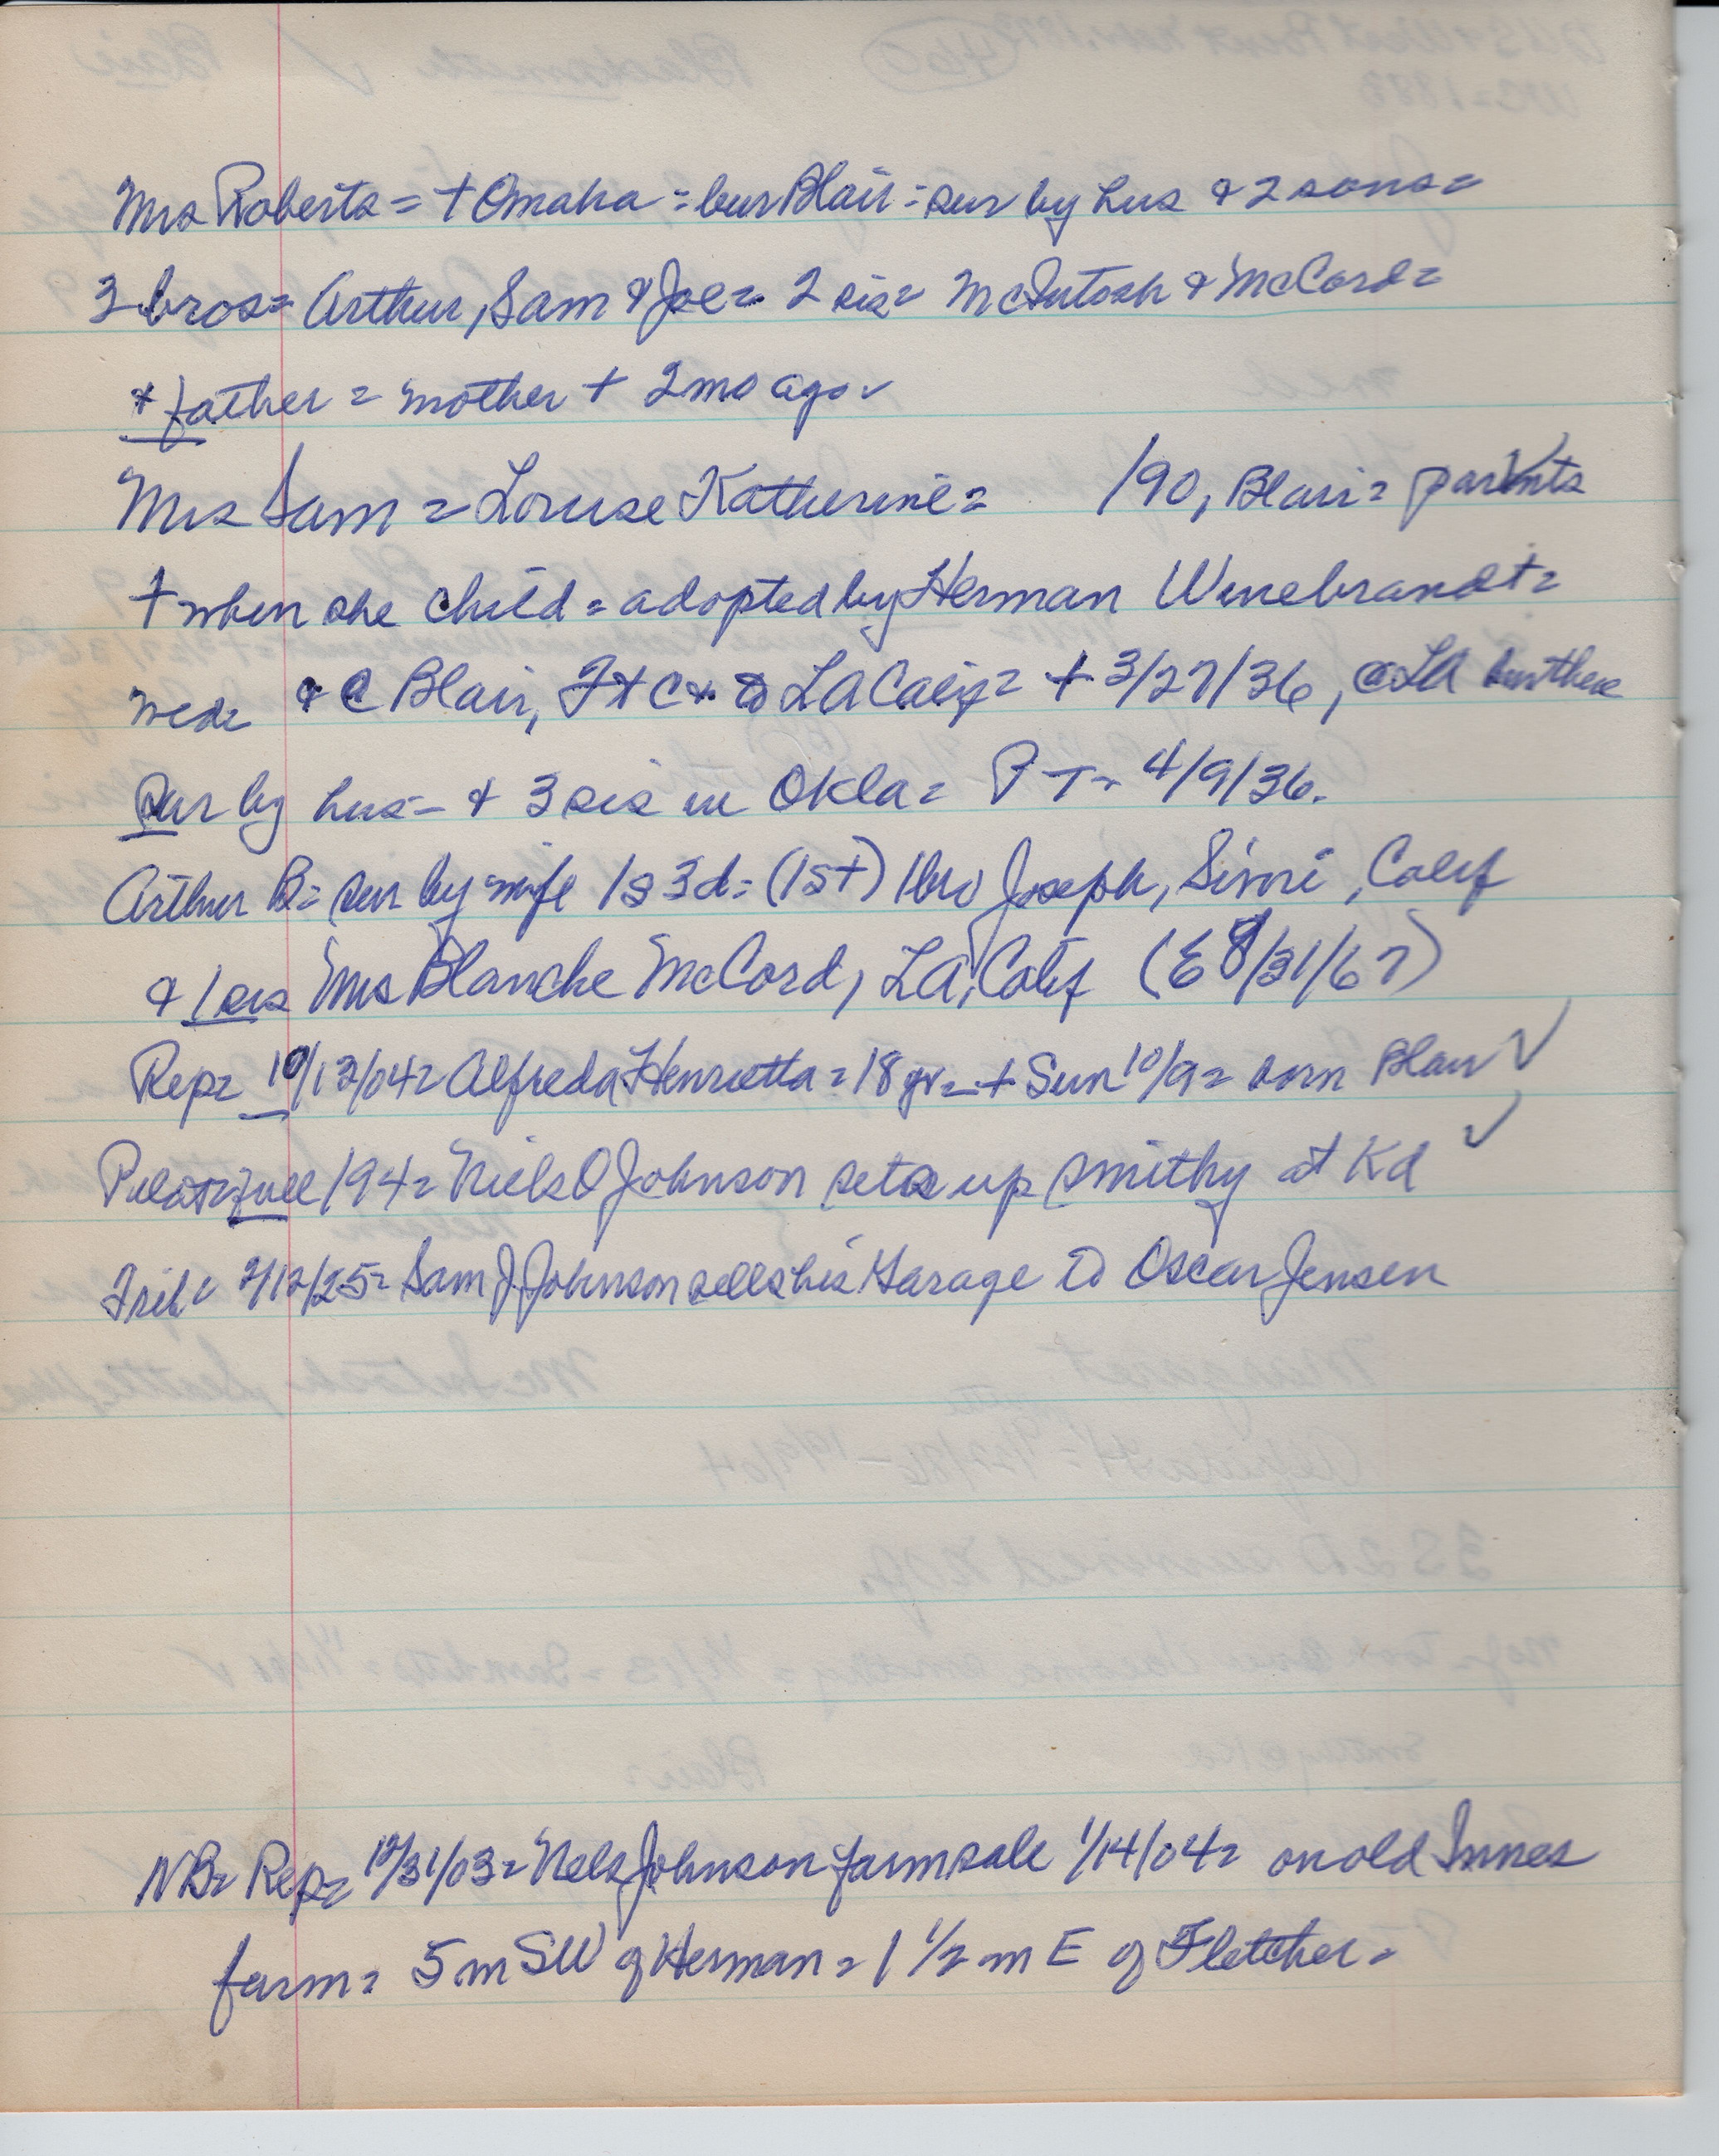 Mrs Roberts = + Omaha = bur Blair = sur by hus & 2 sons =
3 bros = Arthur, Sam & Joe = 2 sis = McIntosh & McCord =
& father = mother + 2 mo ago
Mrs Sam = Louise Katherine = /90, Blair = parents
+ when she child = adopted by Herman Winebrandt =
wed = & C Blair, Ft C & to LA Calif = + 3/27/36, @ LA bur there
Sur by hus - & 3 sis in Okla = P T = 4/9/36.
Arthur B = sur by wife 1s 3d = (1s+) 1 bro Joseph, Simi, Calif
& 1 sis Mrs Blanche McCord, LA, Calif (E 8/31/67)
Rep = 10/13/04 = Alfreda Henrietta = 18 yr = + Sun 10/9 = born Blair ✓
Pilot = fall /94 = Niels O Johnson sets up smithy at Kd ✓
Trib = 2/12/25 = Sam J. Johnson sells his Garage to Oscar Jensen
NB = Rep = 12/31/03 = Nels Johnson farm sale 1/14/04 = on old Innes
farm = 5 m SW of Herman = 1 1/2 m E of Fletcher =